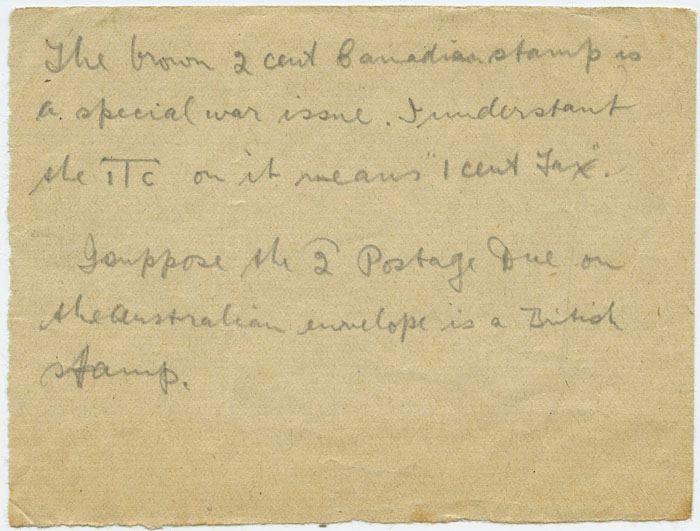 The brown 2 cent Canadian stamp is
a special war issue. I understant
the 1Tc on it means "1 cent Tax".
I suppose the 2 Postage Due on
the Australian envelope is a British
stamp.